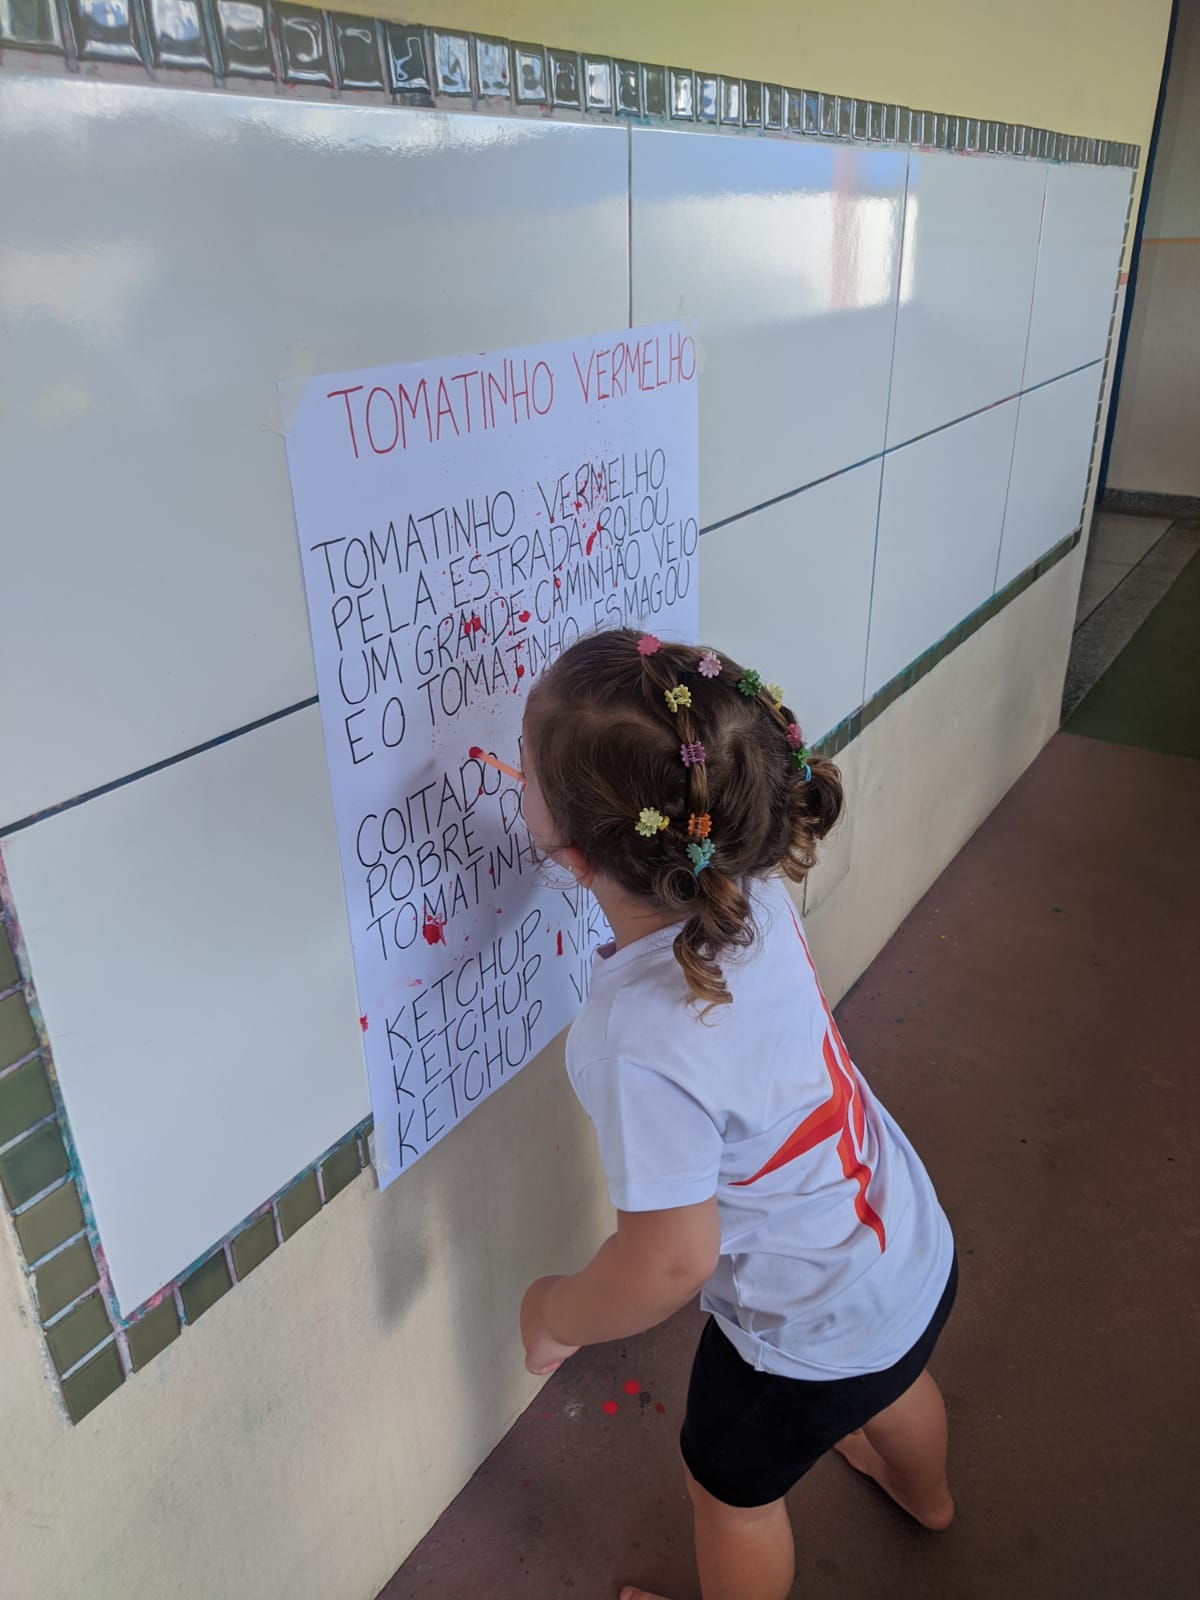 TOMATINHO VERMELHO
TOMATINHO VERMELHO
PELA ESTRADA ROLOU
UM GRANDE CAMINHÃO VEIO
E O TOMATINHO ESMAGOU
COITADO
POBRE
TOMATINHO
KETCHUP
KETCHUP
KETCHUP